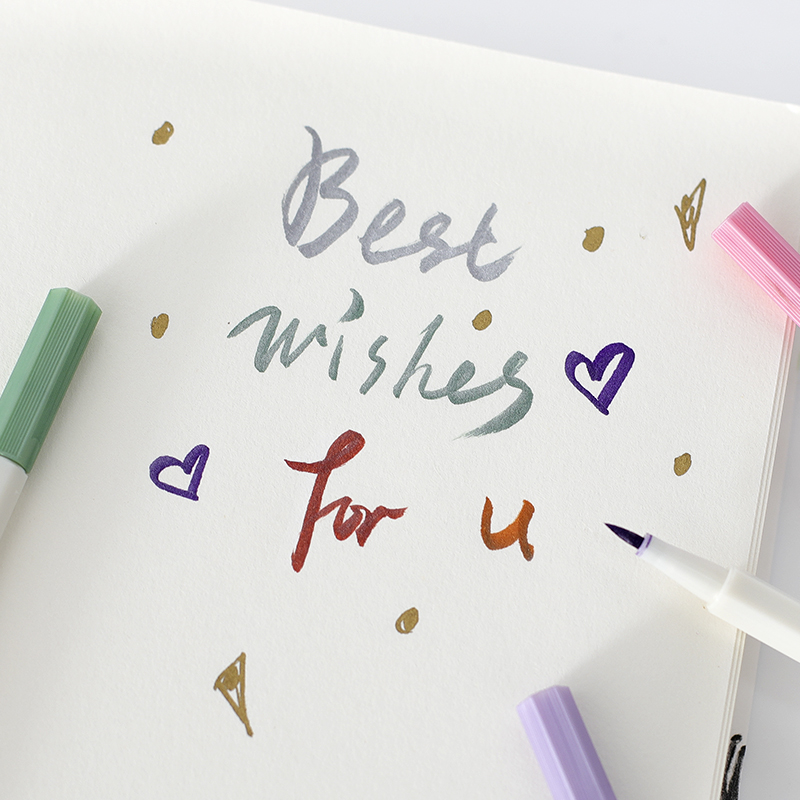 Best
wishes
for u